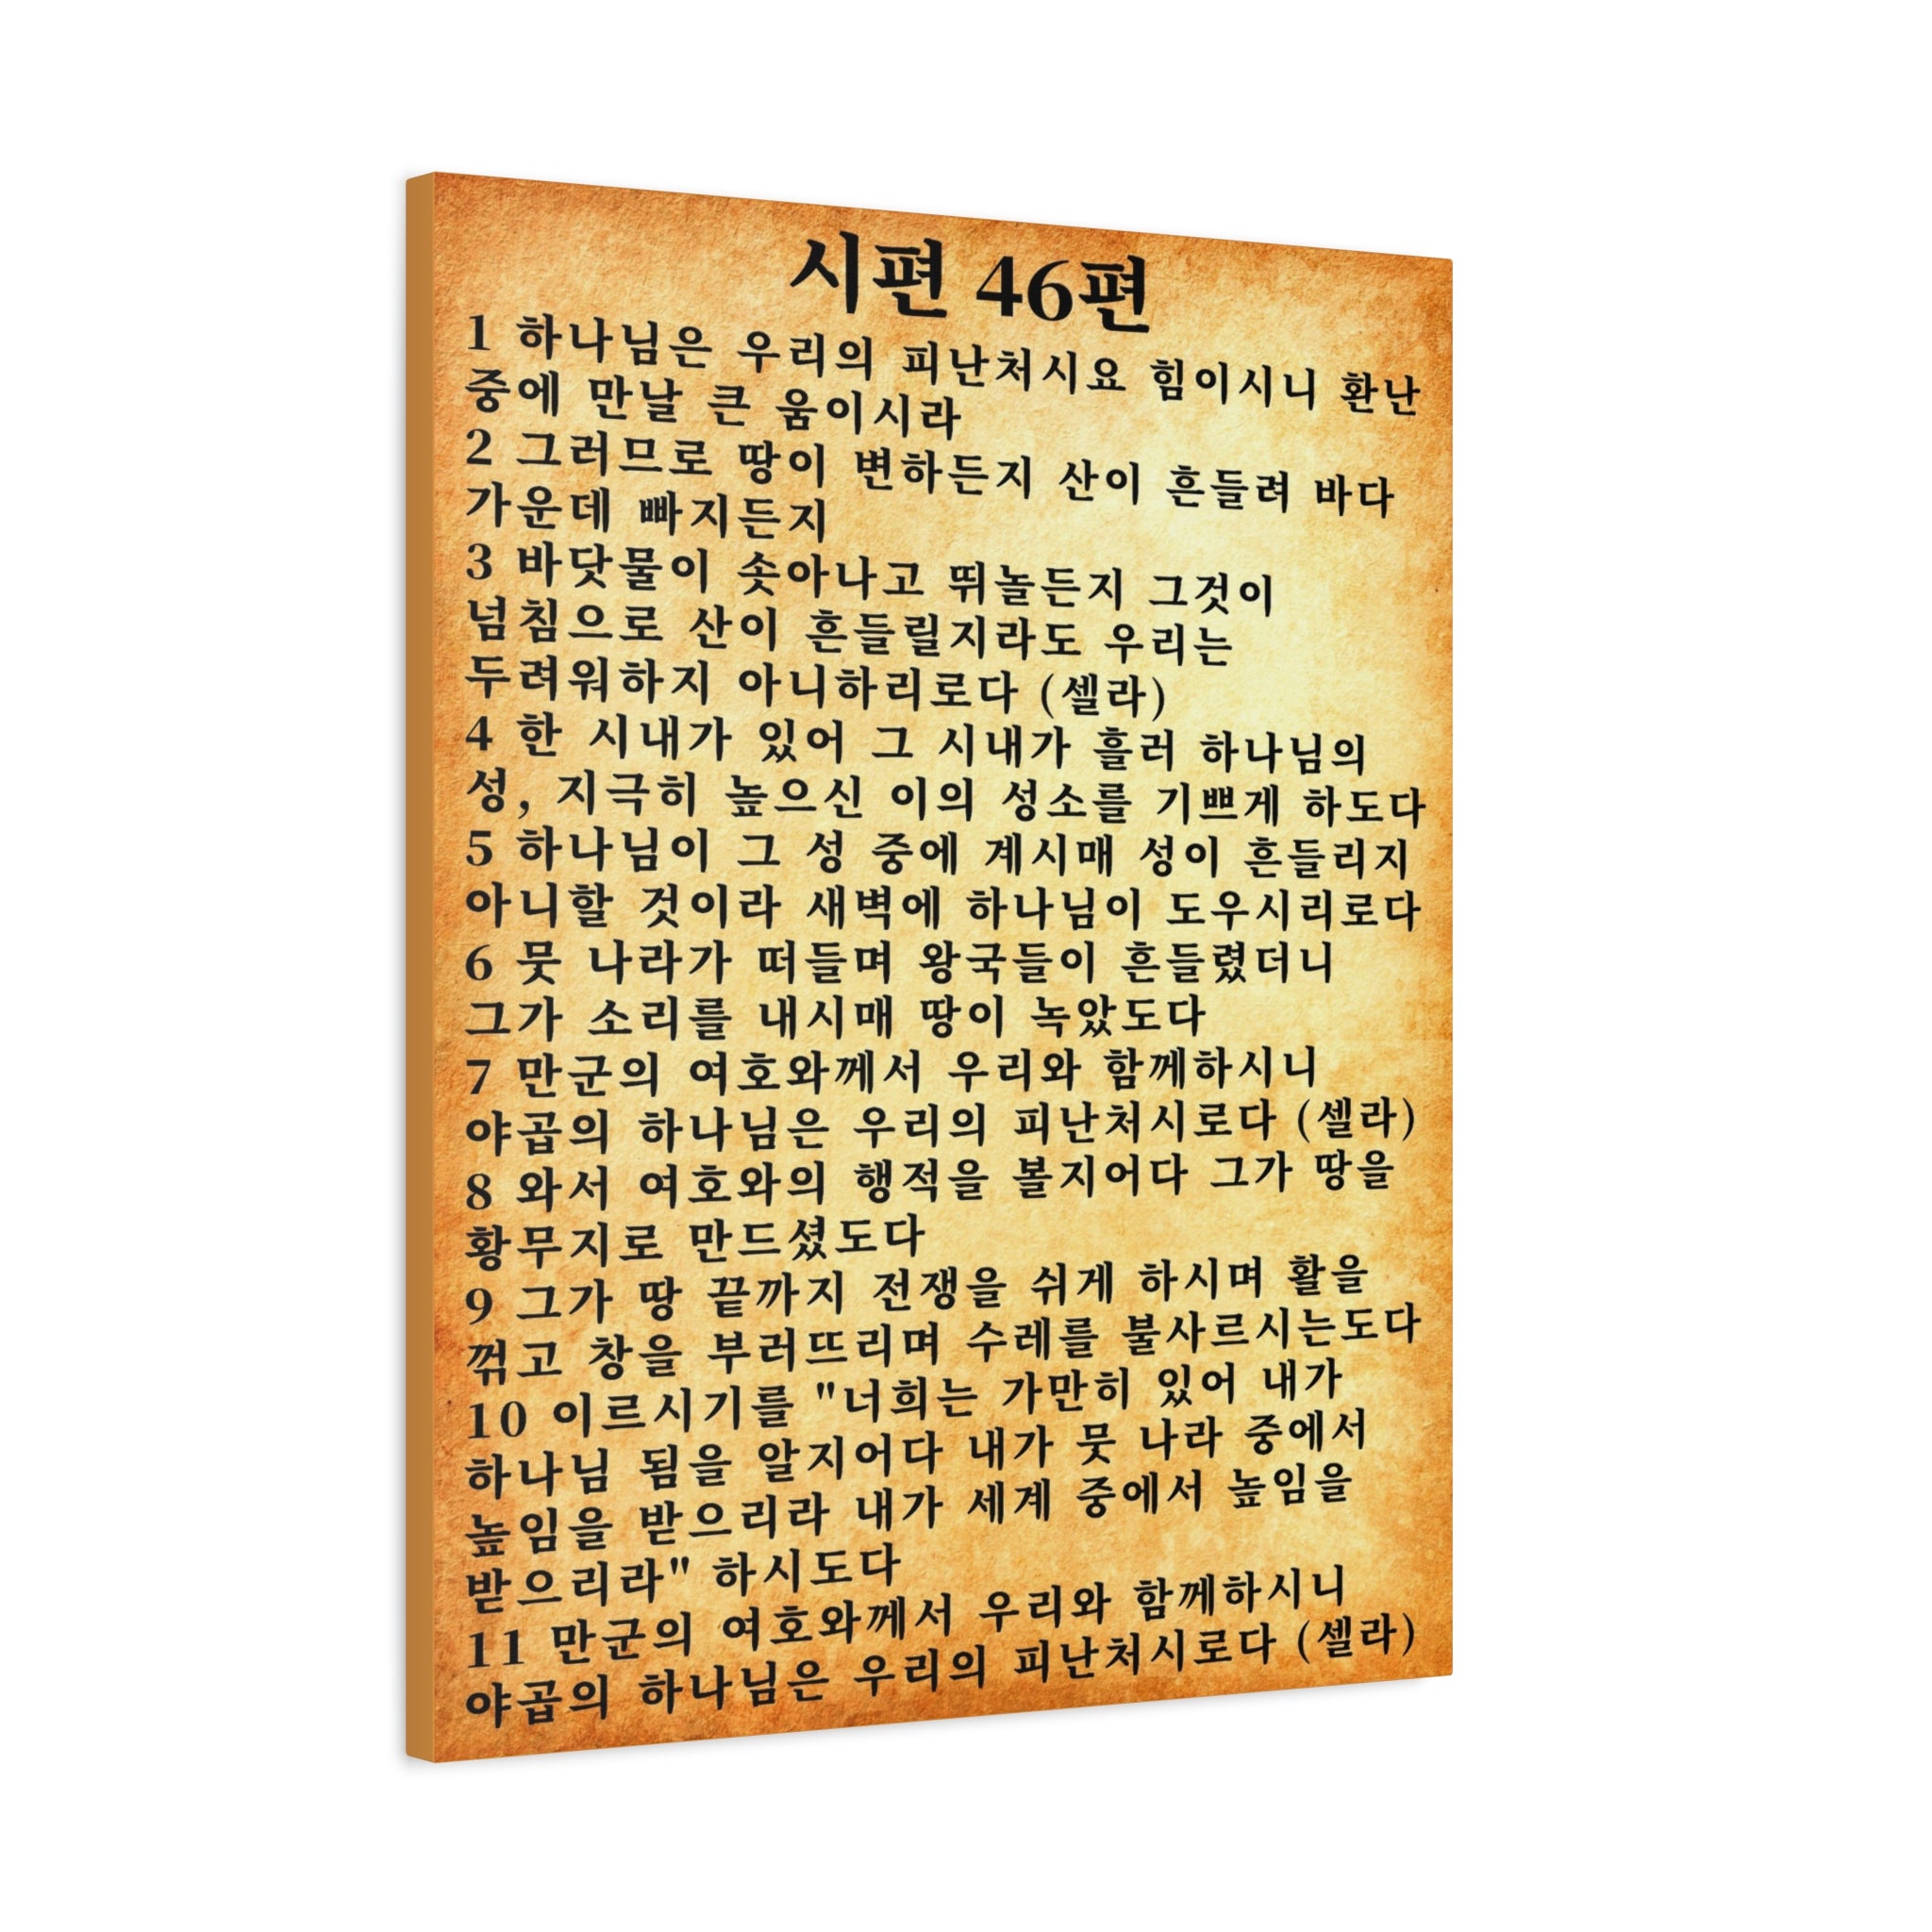 시편 46편
1 하나님은 우리의 피난처시요 힘이시니 환난
중에 만날 큰 움이시라
2 그러므로 땅이 변하든지 산이 흔들려 바다
가운데 빠지든지
3 바닷물이 솟아나고 뛰놀든지 그것이
넘침으로 산이 흔들릴지라도 우리는
두려워하지 아니하리로다 (셀라)
4 한 시내가 있어 그 시내가 흘러 하나님의
성, 지극히 높으신 이의 성소를 기쁘게 하도다
5 하나님이 그 성 중에 계시매 성이 흔들리지
아니할 것이라 새벽에 하나님이 도우시리로다
6 뭇 나라가 떠들며 왕국들이 흔들렸더니
그가 소리를 내시매 땅이 녹았도다
7 만군의 여호와께서 우리와 함께하시니
야곱의 하나님은 우리의 피난처시로다 (셀라)
8 와서 여호와의 행적을 볼지어다 그가 땅을
황무지로 만드셨도다
9 그가 땅 끝까지 전쟁을 쉬게 하시며 활을
꺾고 창을 부러뜨리며 수레를 불사르시는도다
10 이르시기를 "너희는 가만히 있어 내가
하나님 됨을 알지어다 내가 뭇 나라 중에서
높임을 받으리라 내가 세계 중에서 높임을
받으리라" 하시도다
11 만군의 여호와께서 우리와 함께하시니
야곱의 하나님은 우리의 피난처시로다 (셀라)